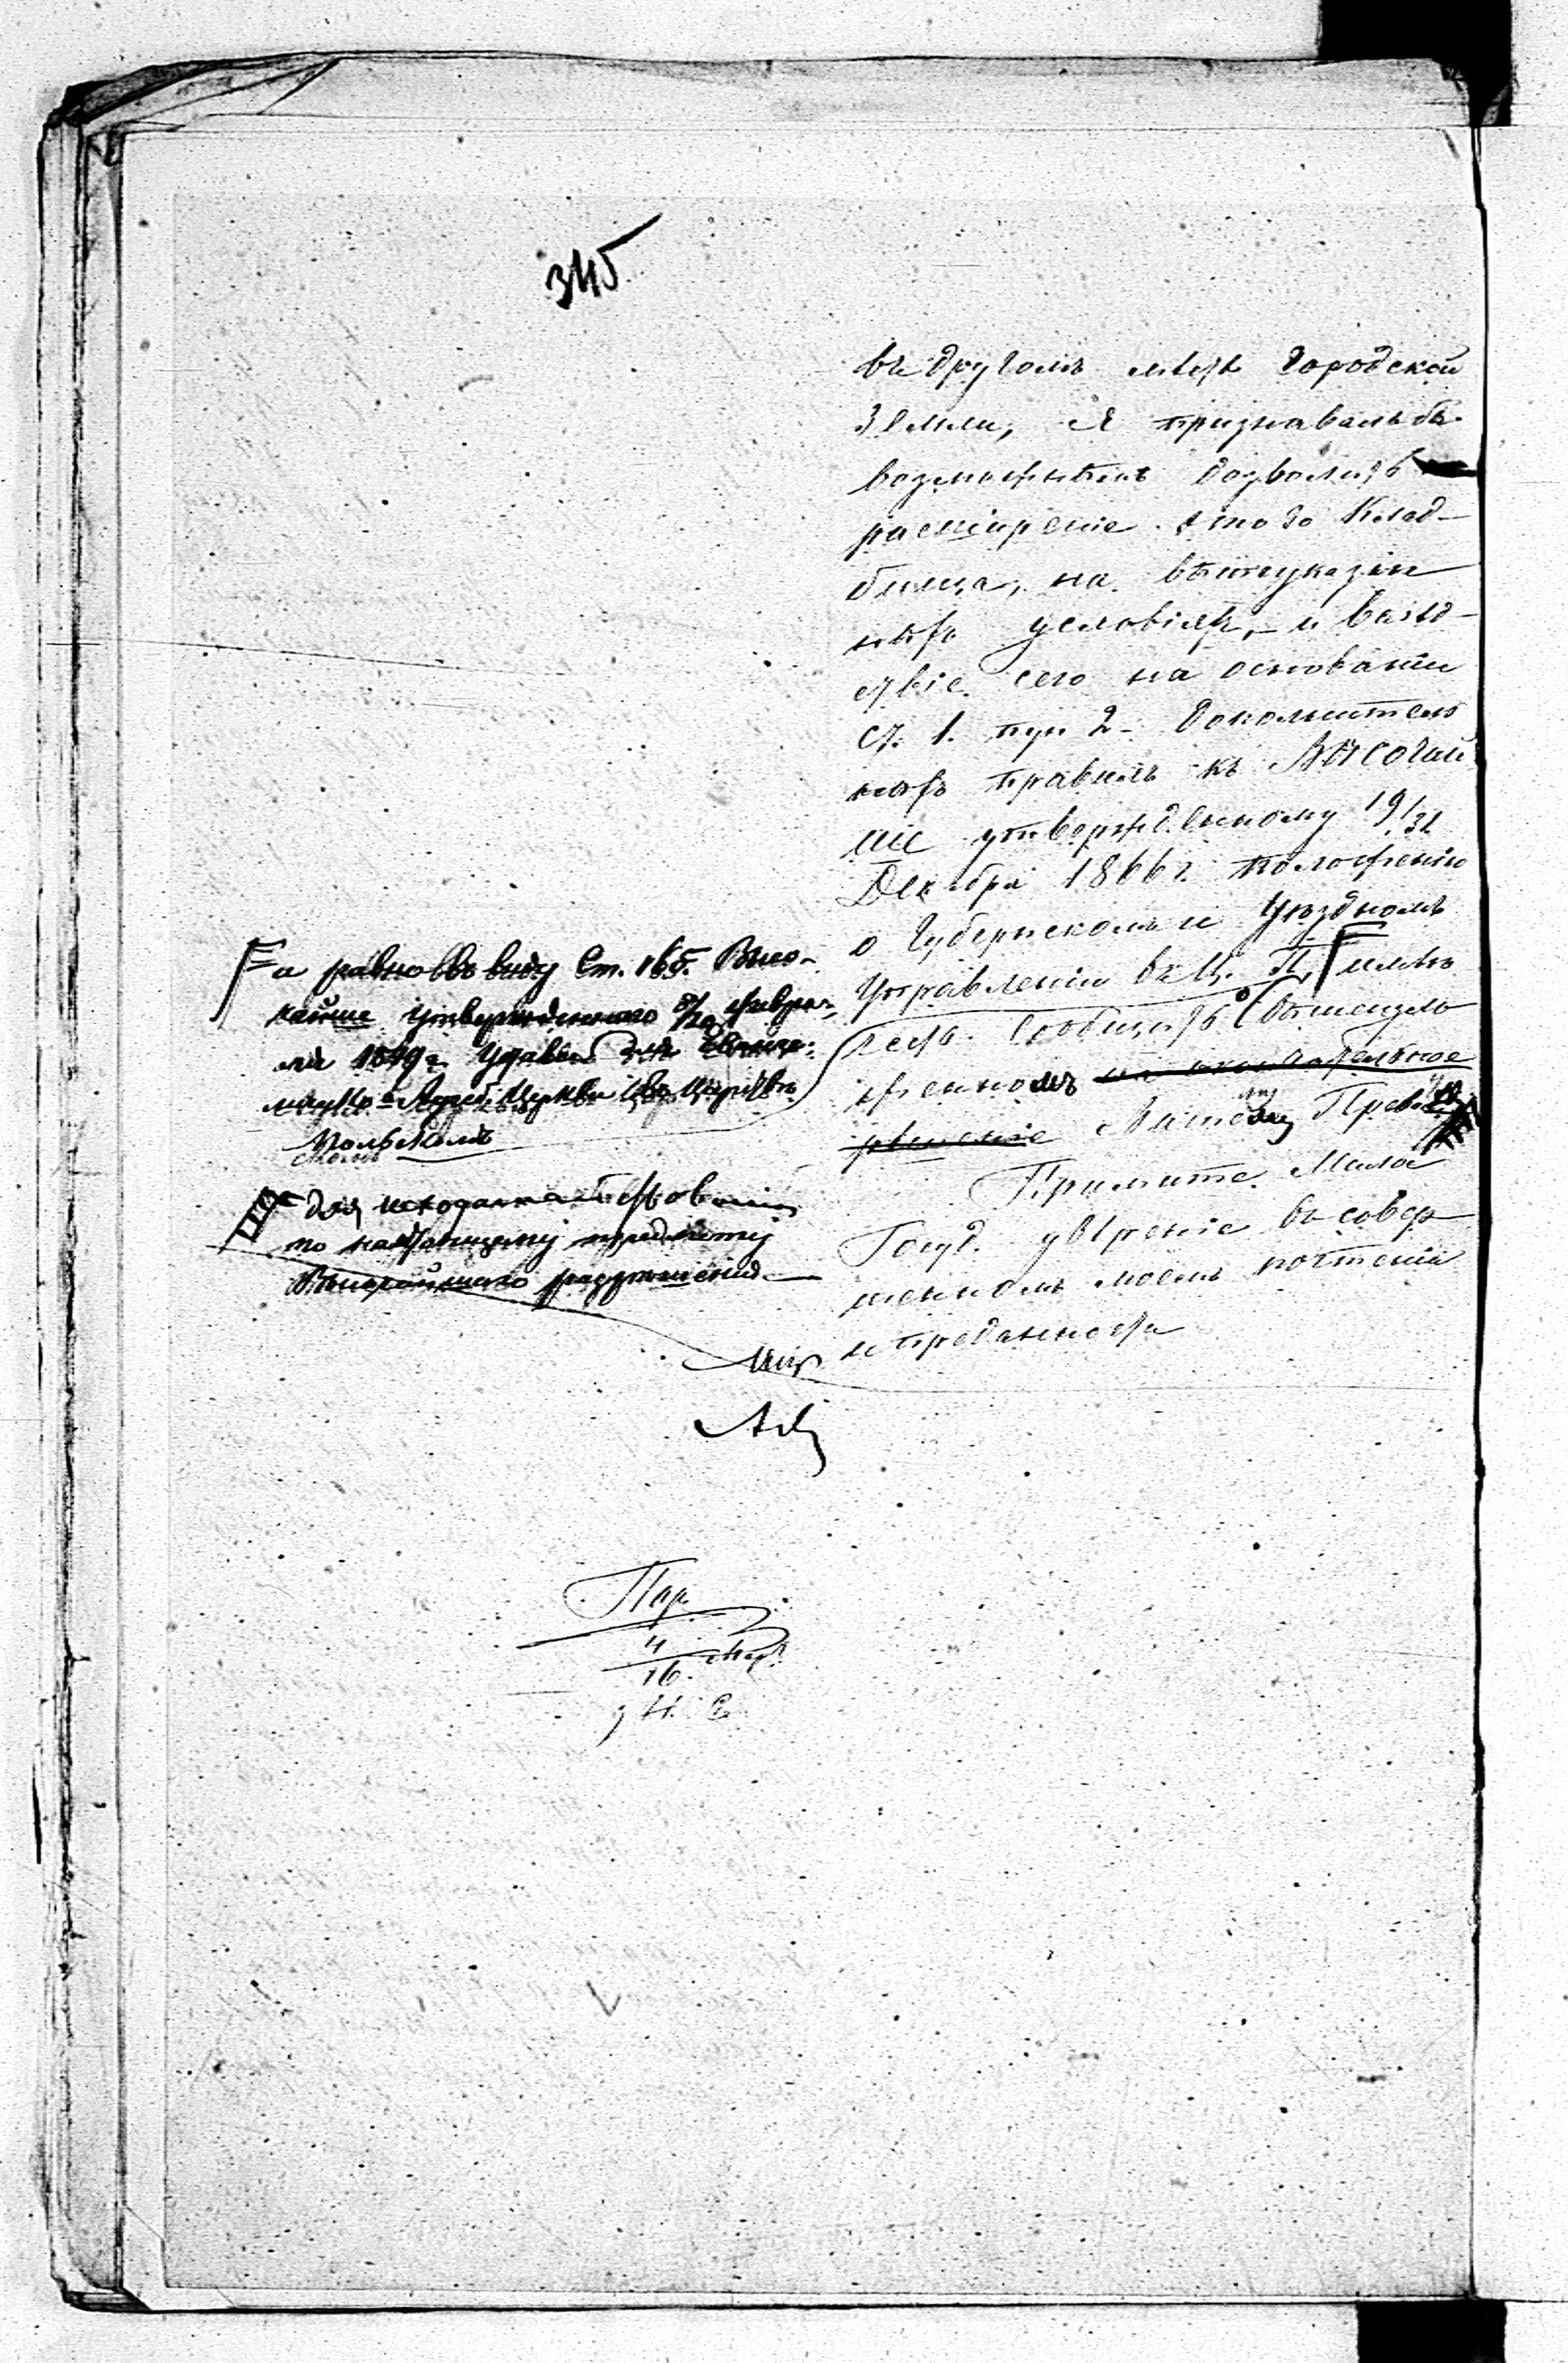 345
въ другомъ мѣстѣ городской
земли, я признавалъ бы
возможнымъ дозволить
расширеніе этого Клад-
бища, на вышеуказан
ныхъ условіяхъ, и вслѣд-
ствіе сего на основаніи
ст. 1. пун 2 - дополнитель
ныхъ правилъ къ Высочай
ше утвержденному 19/31
Декабря 1866 г. положенію
о Губернскомъ и Уѣздномъ
Управленіи въ Ц. П. имѣю
честь сообщить о вышеизло
женномъ на окончательное
рѣшеніе Вашему Прев.
Примите Милос
Госуд. увѣреніе въ совер
шенномъ моемъ почтеніи
и преданности
а равно въ виду Ст. 165. Высо-
чайше утвержденнаго 8/20 Февра-
ля 1849 г. Устава для Еванге-
лическо-Аугсб. Церкви въ Царствѣ
Польскомъ
для исходатайствованія
по настоящему предмету
Высочайшаго разрѣшенія
4
16